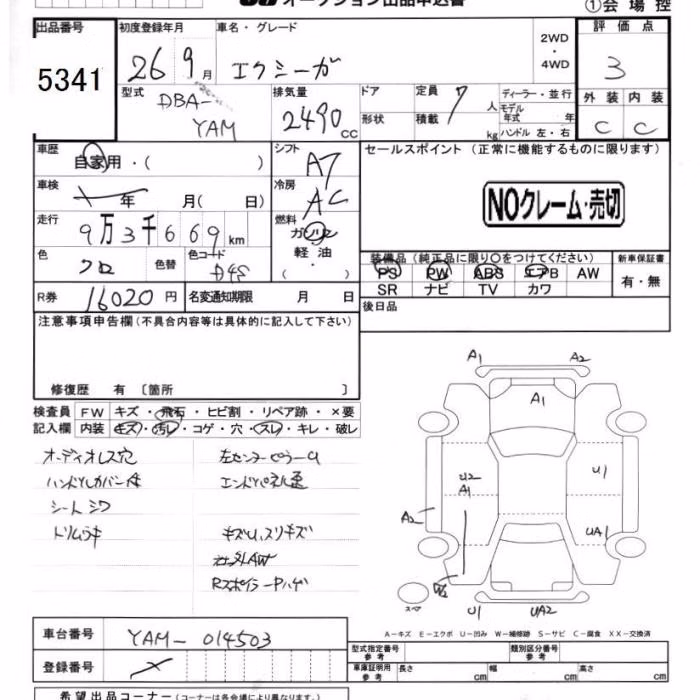 オークション出品申込書
①会場控
出品番号
5341
初度登録年月
26 9月
車名・グレード
エクシーガ
2WD
・
4WD
評価点
3
型式
DBA-
YAM
排気量
2490cc
ドア
形状
定員 7人
積載 kg
ディーラー・並行
モデル年式 年
ハンドル 左・右
外装 内装
C C
車歴
自家用・( )
シフト
A7
セールスポイント (正常に機能するものに限ります)
車検
年 月( 日)
冷房
AC
NOクレーム・売切
走行
9万3千669km
燃料
ガソリン
軽油
・( )
色
クロ
色替
色コード
D4S
装備品 (純正品に限り○をつけてください)
新車保証書
PS PW ABS エアB AW
有・無
SR ナビ TV カワ
R券 16020円
名変通知期限 月 日
後日品
注意事項申告欄(不具合内容等は具体的に記入して下さい)
修復歴 有 〔箇所 〕
検査員記入欄
FW キズ・飛石・ヒビ割・リペア跡・×要
内装 キズ・汚レ・コゲ・穴・スレ・キレ・破レ
オーディオレス穴
シートシワ
キズU,スリキズ
A1 A2
A1
U2
A1
U1
A2
UA1
スペア
U1 UA2
A-キズ E-エクボ U-凹み W-補修跡 S-サビ C-腐食 XX-交換済
車台番号 YAM-014503
登録番号
型式指定番号
参考
類別区分番号
参考
車庫証明用
参考
長さ cm 幅 cm 高さ cm
希望出品コーナー(コーナーは各会場により異なります。)